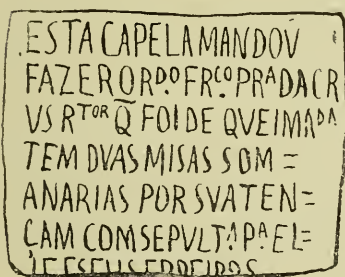 ESTA CAPELA MANDOV
FAZER O R.DO FR.CO PRA DA CR
VS R.TOR Q̃ FOI DE QVEIMADA
TEM DVAS MISAS SOM =
ANARIAS POR SVATEN=
CAM COM SEPVLT.A P.A EL=